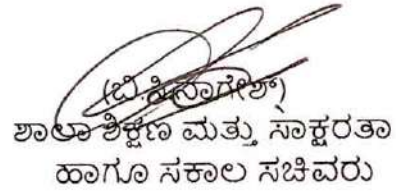 (ಬಿ.ಸಿ.ನಾಗೇಶ್)
ಶಾಲಾ ಶಿಕ್ಷಣ ಮತ್ತು ಸಾಕ್ಷರತಾ
ಹಾಗೂ ಸಕಾಲ ಸಚಿವರು